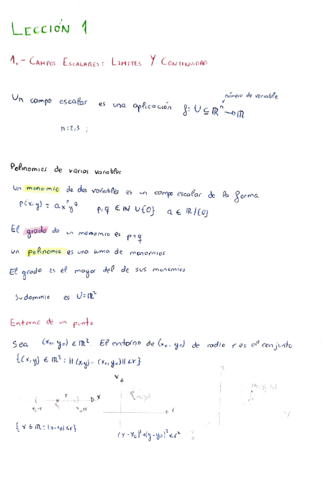 LECCIÓN 1
1.- CAMPOS ESCALARES: LÍMITES Y CONTINUIDAD
número de variable
Un campo escalar es una aplicación f: U ⊆ ℝⁿ → ℝ
n = 2,3 ;
Polinomios de varias variables
Un monomio de dos variables es un campo escalar de la forma
p(x,y) = a x^p y^q p,q ∈ ℕ ∪ {0} a ∈ ℝ/{0}
El grado de un monomio es p+q
Un polinomio es una suma de monomios
El grado es el mayor del de sus monomios
Su dominio es U = ℝ²
Entorno de un punto
Sea (x₀, y₀) ∈ ℝ² El entorno de (x₀, y₀) de radio r es el conjunto
{(x,y) ∈ ℝ² : ||(x,y) - (x₀,y₀)|| < r}
(x-x₀)² + (y-y₀)² < r²